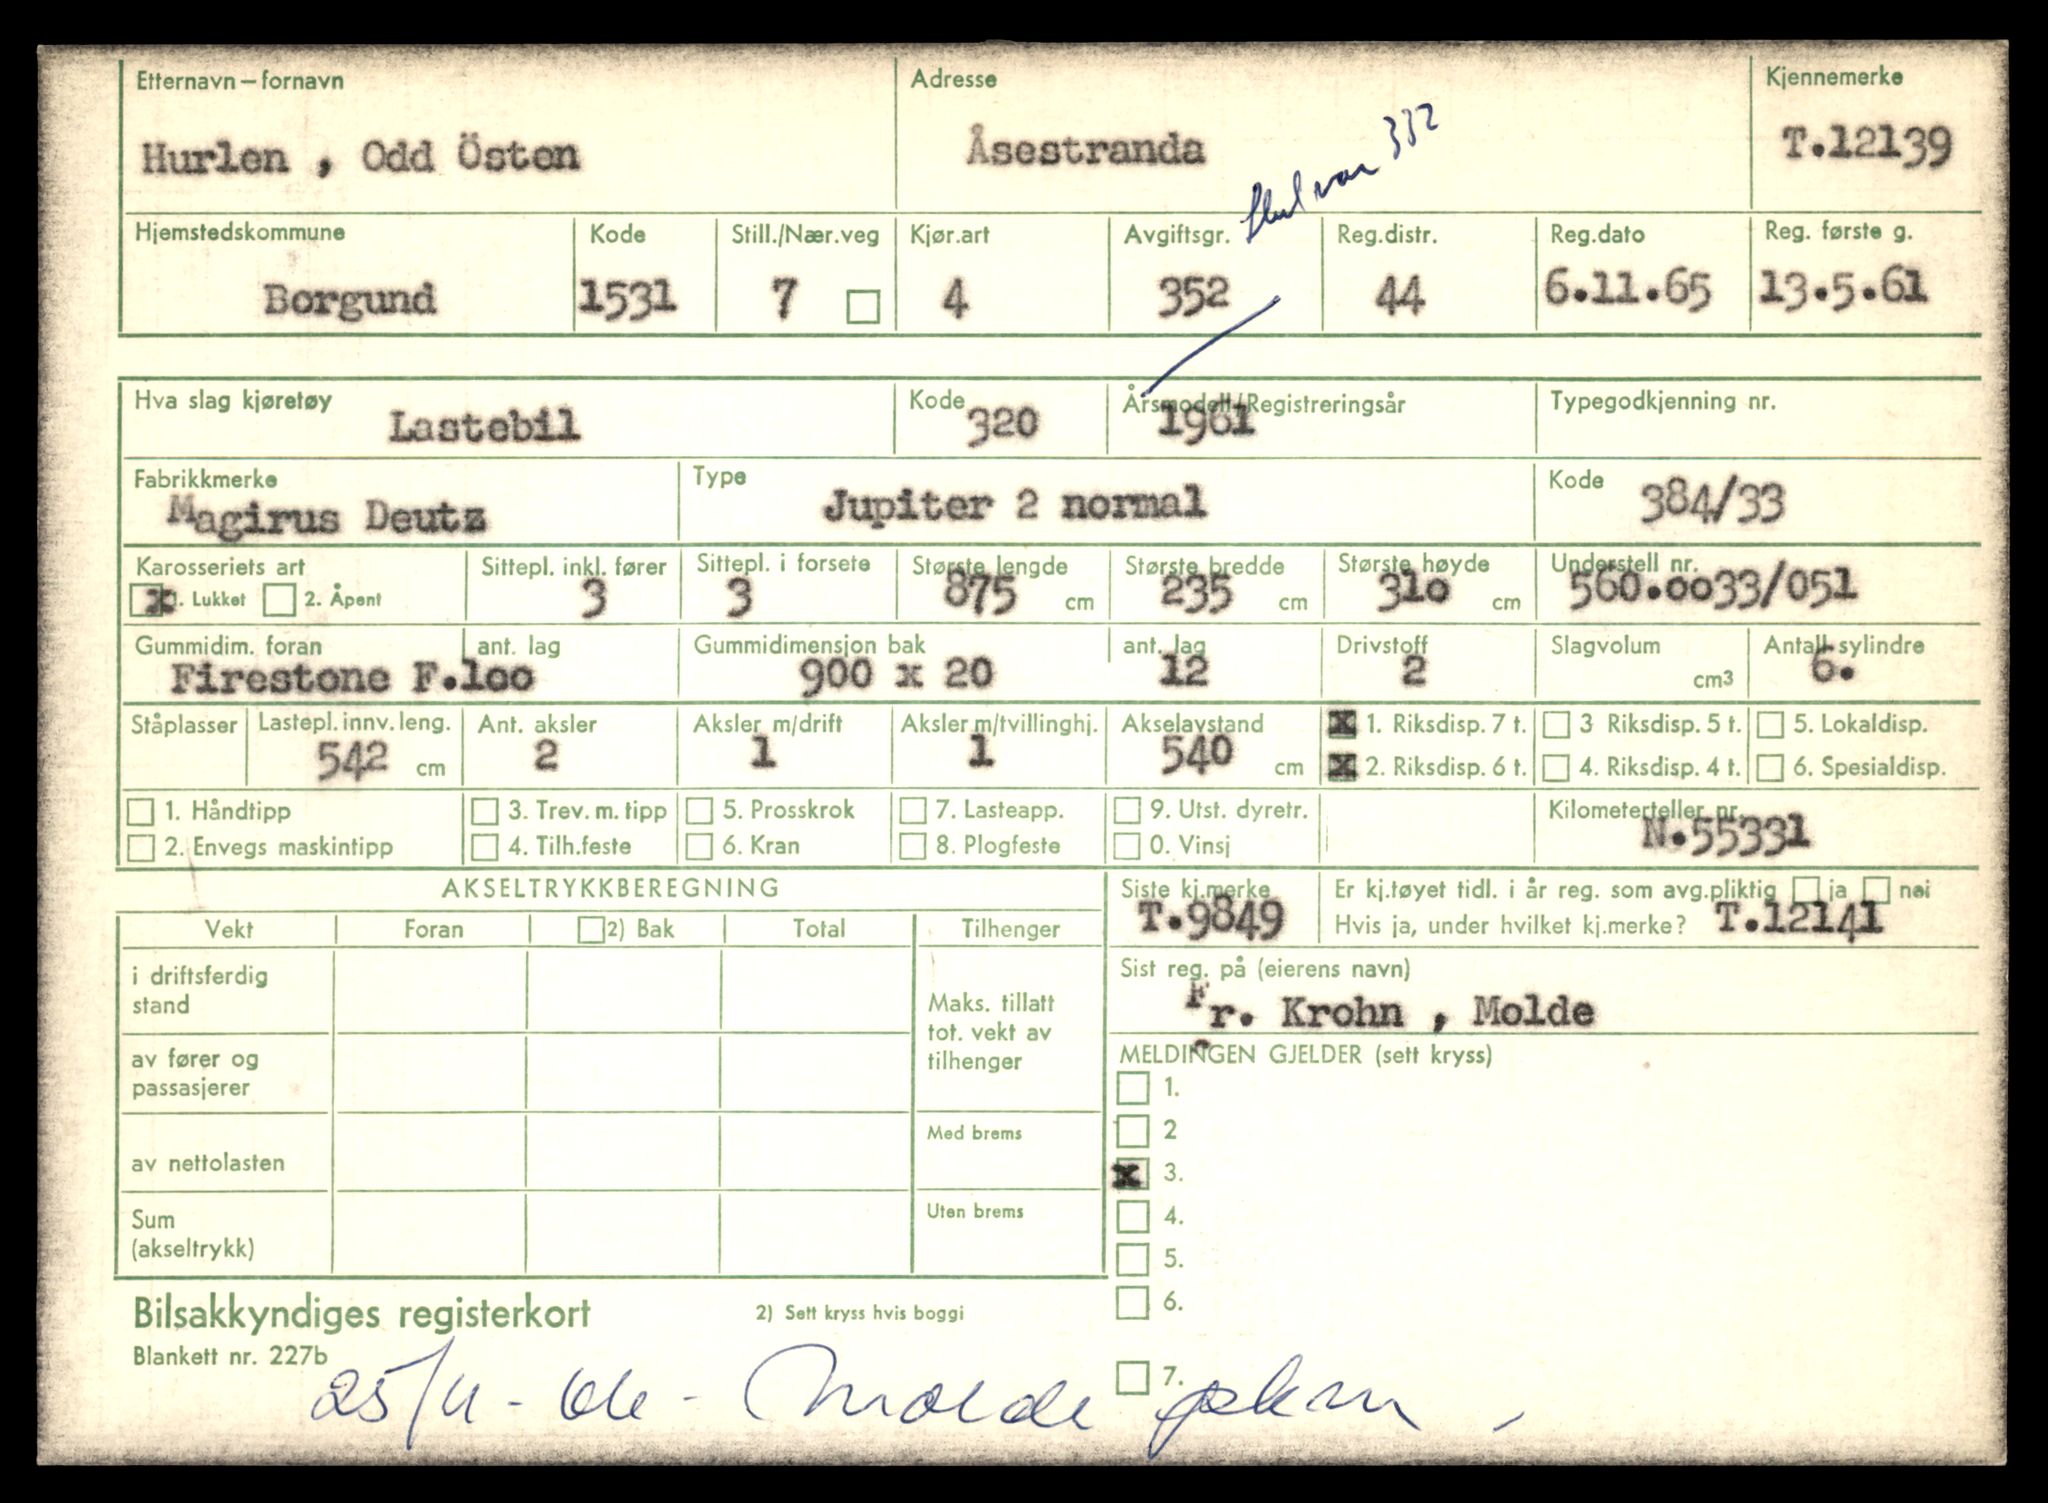 Etternavn – fornavn Adresse Kjennemerke
Hurlen , Odd Östen Åsestranda 332 T.12139
Hjemstedskommune Kode Still./Nær.veg Kjør.art Avgiftsgr. Reg.distr. Reg.dato Reg. første g.
Borgund 1531 7 4 352 44 6.11.65 13.5.61
Hva slag kjøretøy Kode Årsmodell/Registreringsår Typegodkjenning nr.
Lastebil 320 1961
Fabrikkmerke Type Kode
Magirus Deutz Jupiter 2 normal 384/33
Karosseriets art Sittepl. inkl. fører Sittepl. i forsete Største lengde Største bredde Største høyde Understell nr.
x 1. Lukket 2. Åpent 3 3 875 cm 235 cm 310 cm 560.0033/051
Gummidim. foran ant. lag Gummidimensjon bak ant. lag Drivstoff Slagvolum Antall sylindre
Firestone F.loo 900 x 20 12 2 cm3 6.
Ståplasser Lastepl. innv. leng. Ant. aksler Aksler m/drift Aksler m/tvillinghj. Akselavstand x 1. Riksdisp. 7 t. 3 Riksdisp. 5 t. 5. Lokaldisp.
542 cm 2 1 1 540 cm x 2. Riksdisp. 6 t. 4. Riksdisp. 4 t. 6. Spesialdisp.
1. Håndtipp 3. Trev. m. tipp 5. Prosskrok 7. Lasteapp. 9. Utst. dyretr. Kilometerteller nr.
2. Envegs maskintipp 4. Tilh.feste 6. Kran 8. Plogfeste 0. Vinsj N.55331
AKSELTRYKKBEREGNING Siste kj.merke Er kj.tøyet tidl. i år reg. som avg.pliktig ja nei
T.9849 Hvis ja, under hvilket kj.merke? T.12141
Vekt Foran 2) Bak Total Tilhenger
Sist reg. på (eierens navn)
Fr. Krohn , Molde
i driftsferdig
stand
Maks. tillatt
tot. vekt av
tilhenger
av fører og
passasjerer
MELDINGEN GJELDER (sett kryss)
1.
2
Med brems
av nettolasten
x 3.
Sum
(akseltrykk)
Uten brems
4.
5.
6.
Bilsakkyndiges registerkort 2) Sett kryss hvis boggi
Blankett nr. 227b
7.
25/11 - 66 - Molde